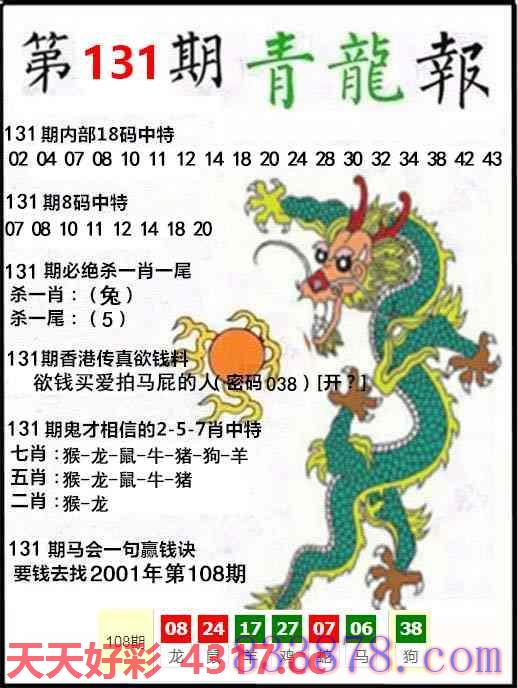 第131期青龍報
131期内部18码中特
02 04 07 08 10 11 12 14 18 20 24 28 30 32 34 38 42 43
131期8码中特
07 08 10 11 12 14 18 20
131期必绝杀一肖一尾
杀一肖：(兔)
杀一尾：(5)
131期香港传真欲钱料
欲钱买爱拍马屁的人(密码038)[开？]
131期鬼才相信的2-5-7肖中特
七肖：猴-龙-鼠-牛-猪-狗-羊
五肖：猴-龙-鼠-牛-猪
二肖：猴-龙
131期马会一句赢钱诀
要钱去找2001年第108期
108期 08 24 17 27 07 06 38
龙 鼠 羊 鸡 蛇 马 狗
天天好彩 4317.cc